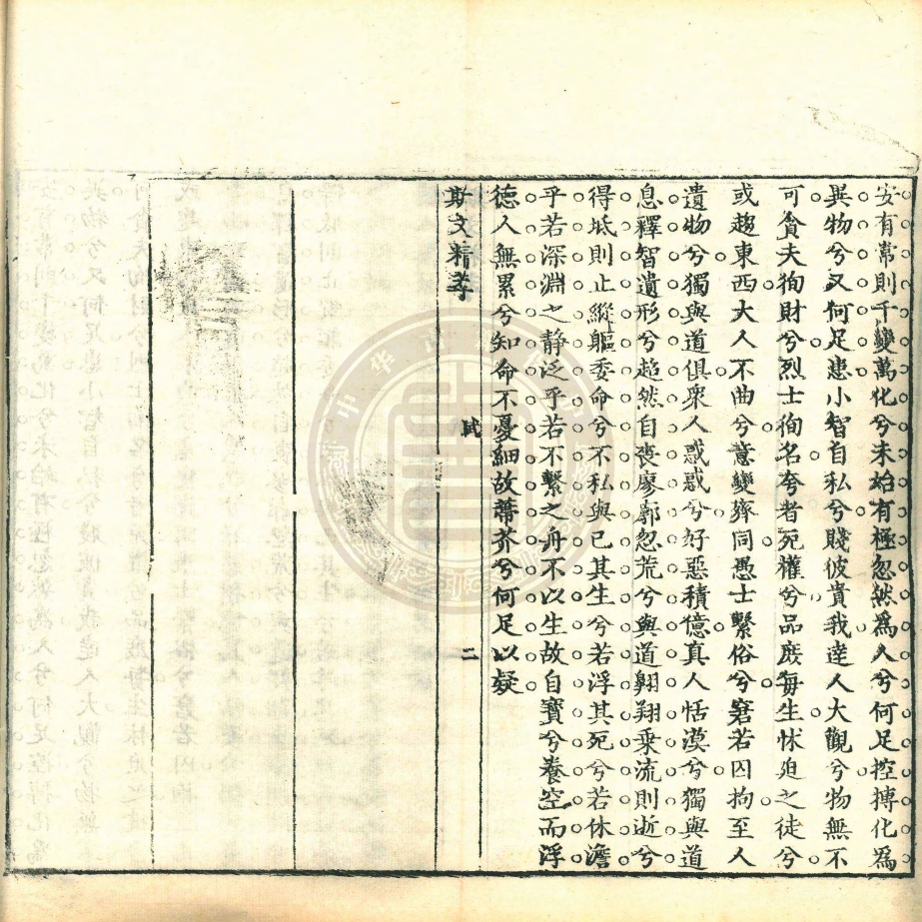 安有常則千變萬化兮未始有極忽然爲人兮何足控摶化爲
異物兮又何足患小智自私兮賤彼貴我達人大觀兮物無不
可貪夫徇財兮烈士徇名夸者死權兮品庶每生怵迫之徒兮
或趨東西大人不曲兮意變齊同愚士繫俗兮窘若囚拘至人
遺物兮獨與道俱衆人惑惑兮好惡積憶真人恬漠兮獨與道
息釋智遺形兮超然自喪廖廓忽荒兮與道翺翔乘流則逝兮
得坻則止縱軀委命兮不私與已其生兮若浮其死兮若休澹
乎若深淵之静泛乎若不繫之舟不以生故自寶兮養空而浮
德人無累兮知命不憂細故蔕芥兮何足以疑
斯文精萃
賦
二